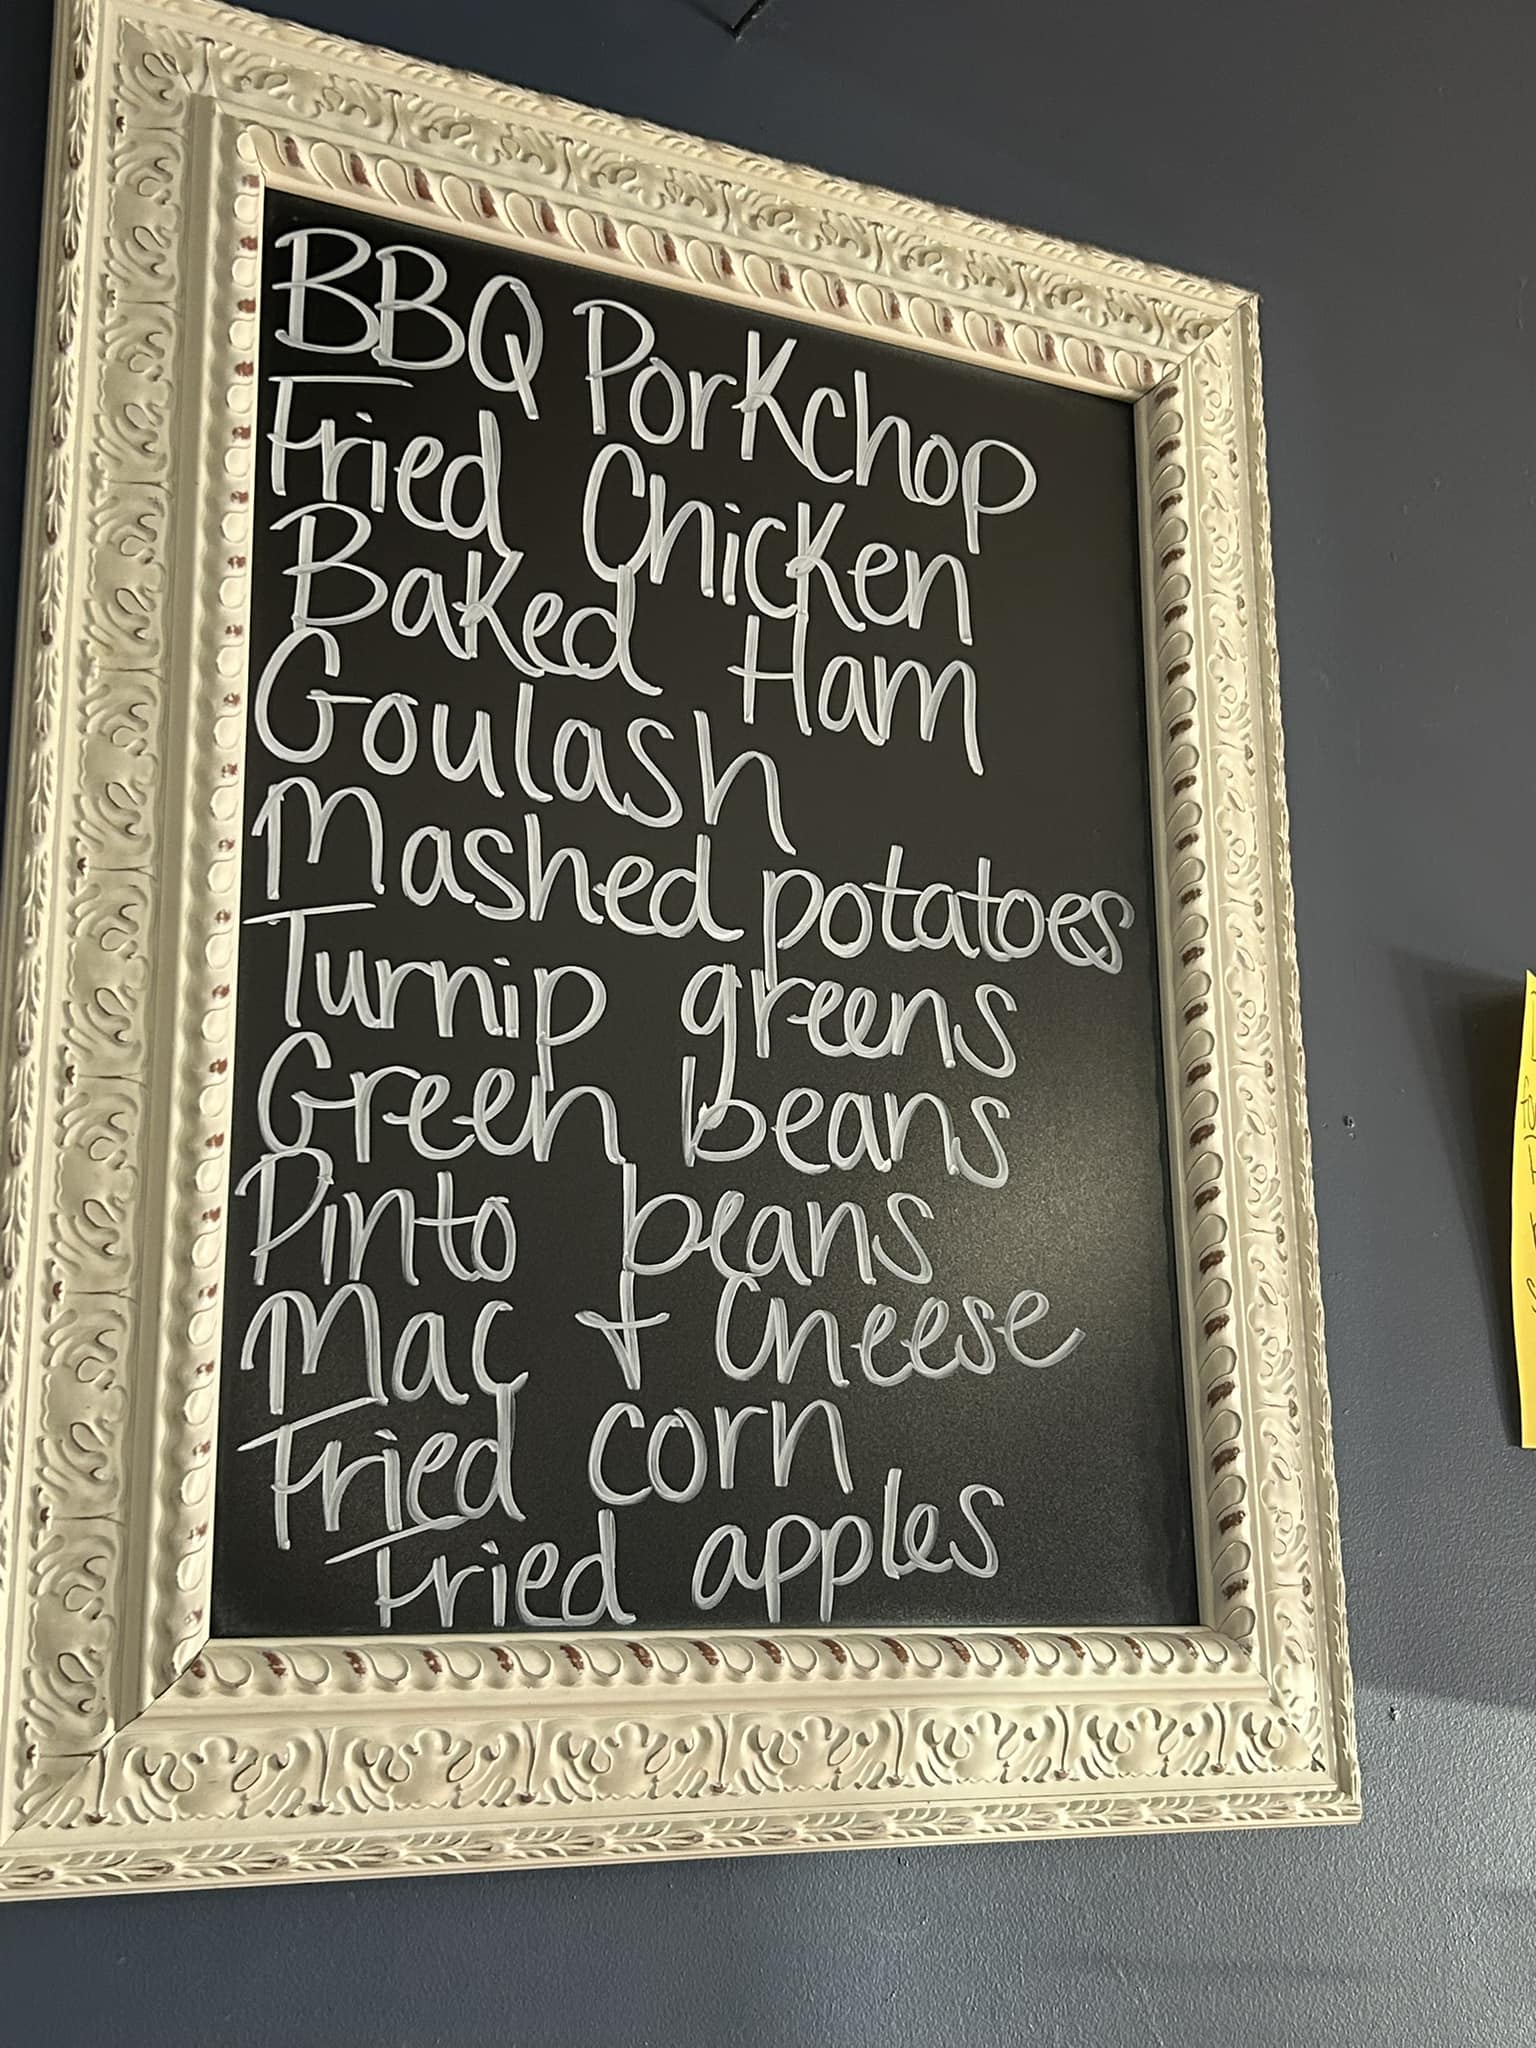 BBQ Porkchop
Fried Chicken
Baked Ham
Goulash
Mashed potatoes
Turnip greens
Green beans
Pinto beans
Mac + Cheese
Fried corn
Fried apples